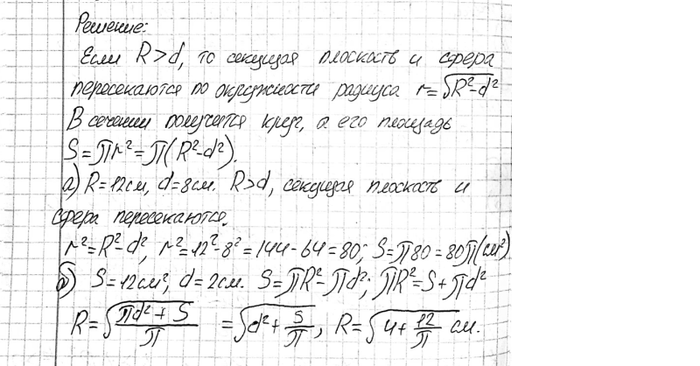 Решение:
Если R>d, то секущая плоскость и сфера
пересекаются по окружности радиуса r=√(R²-d²)
В сечении получится круг, а его площадь
S=πr²=π(R²-d²).
а) R=12см, d=8см. R>d, секущая плоскость и
сфера пересекаются.
r²=R²-d², r²=12²-8²=144-64=80; S=π80=80π(см²)
б) S=12см², d=2см. S=πR²-πd²; πR²=S+πd²
R=√((πd²+S)/π) =√(d²+S/π), R=√(4+12/π) см.